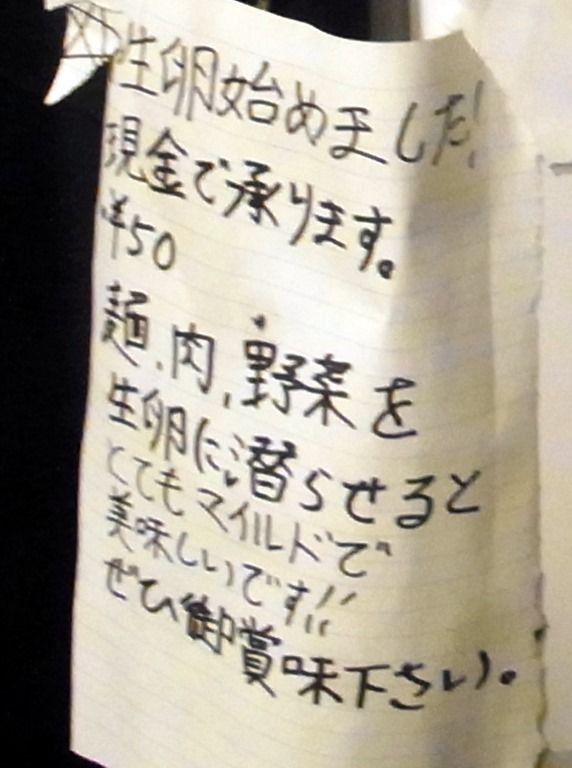 生卵始めました!
現金で承ります。
¥50
麺、肉、野菜を
生卵に潜らせると
とてもマイルドで
美味しいです!!
ぜひ御賞味下さい。